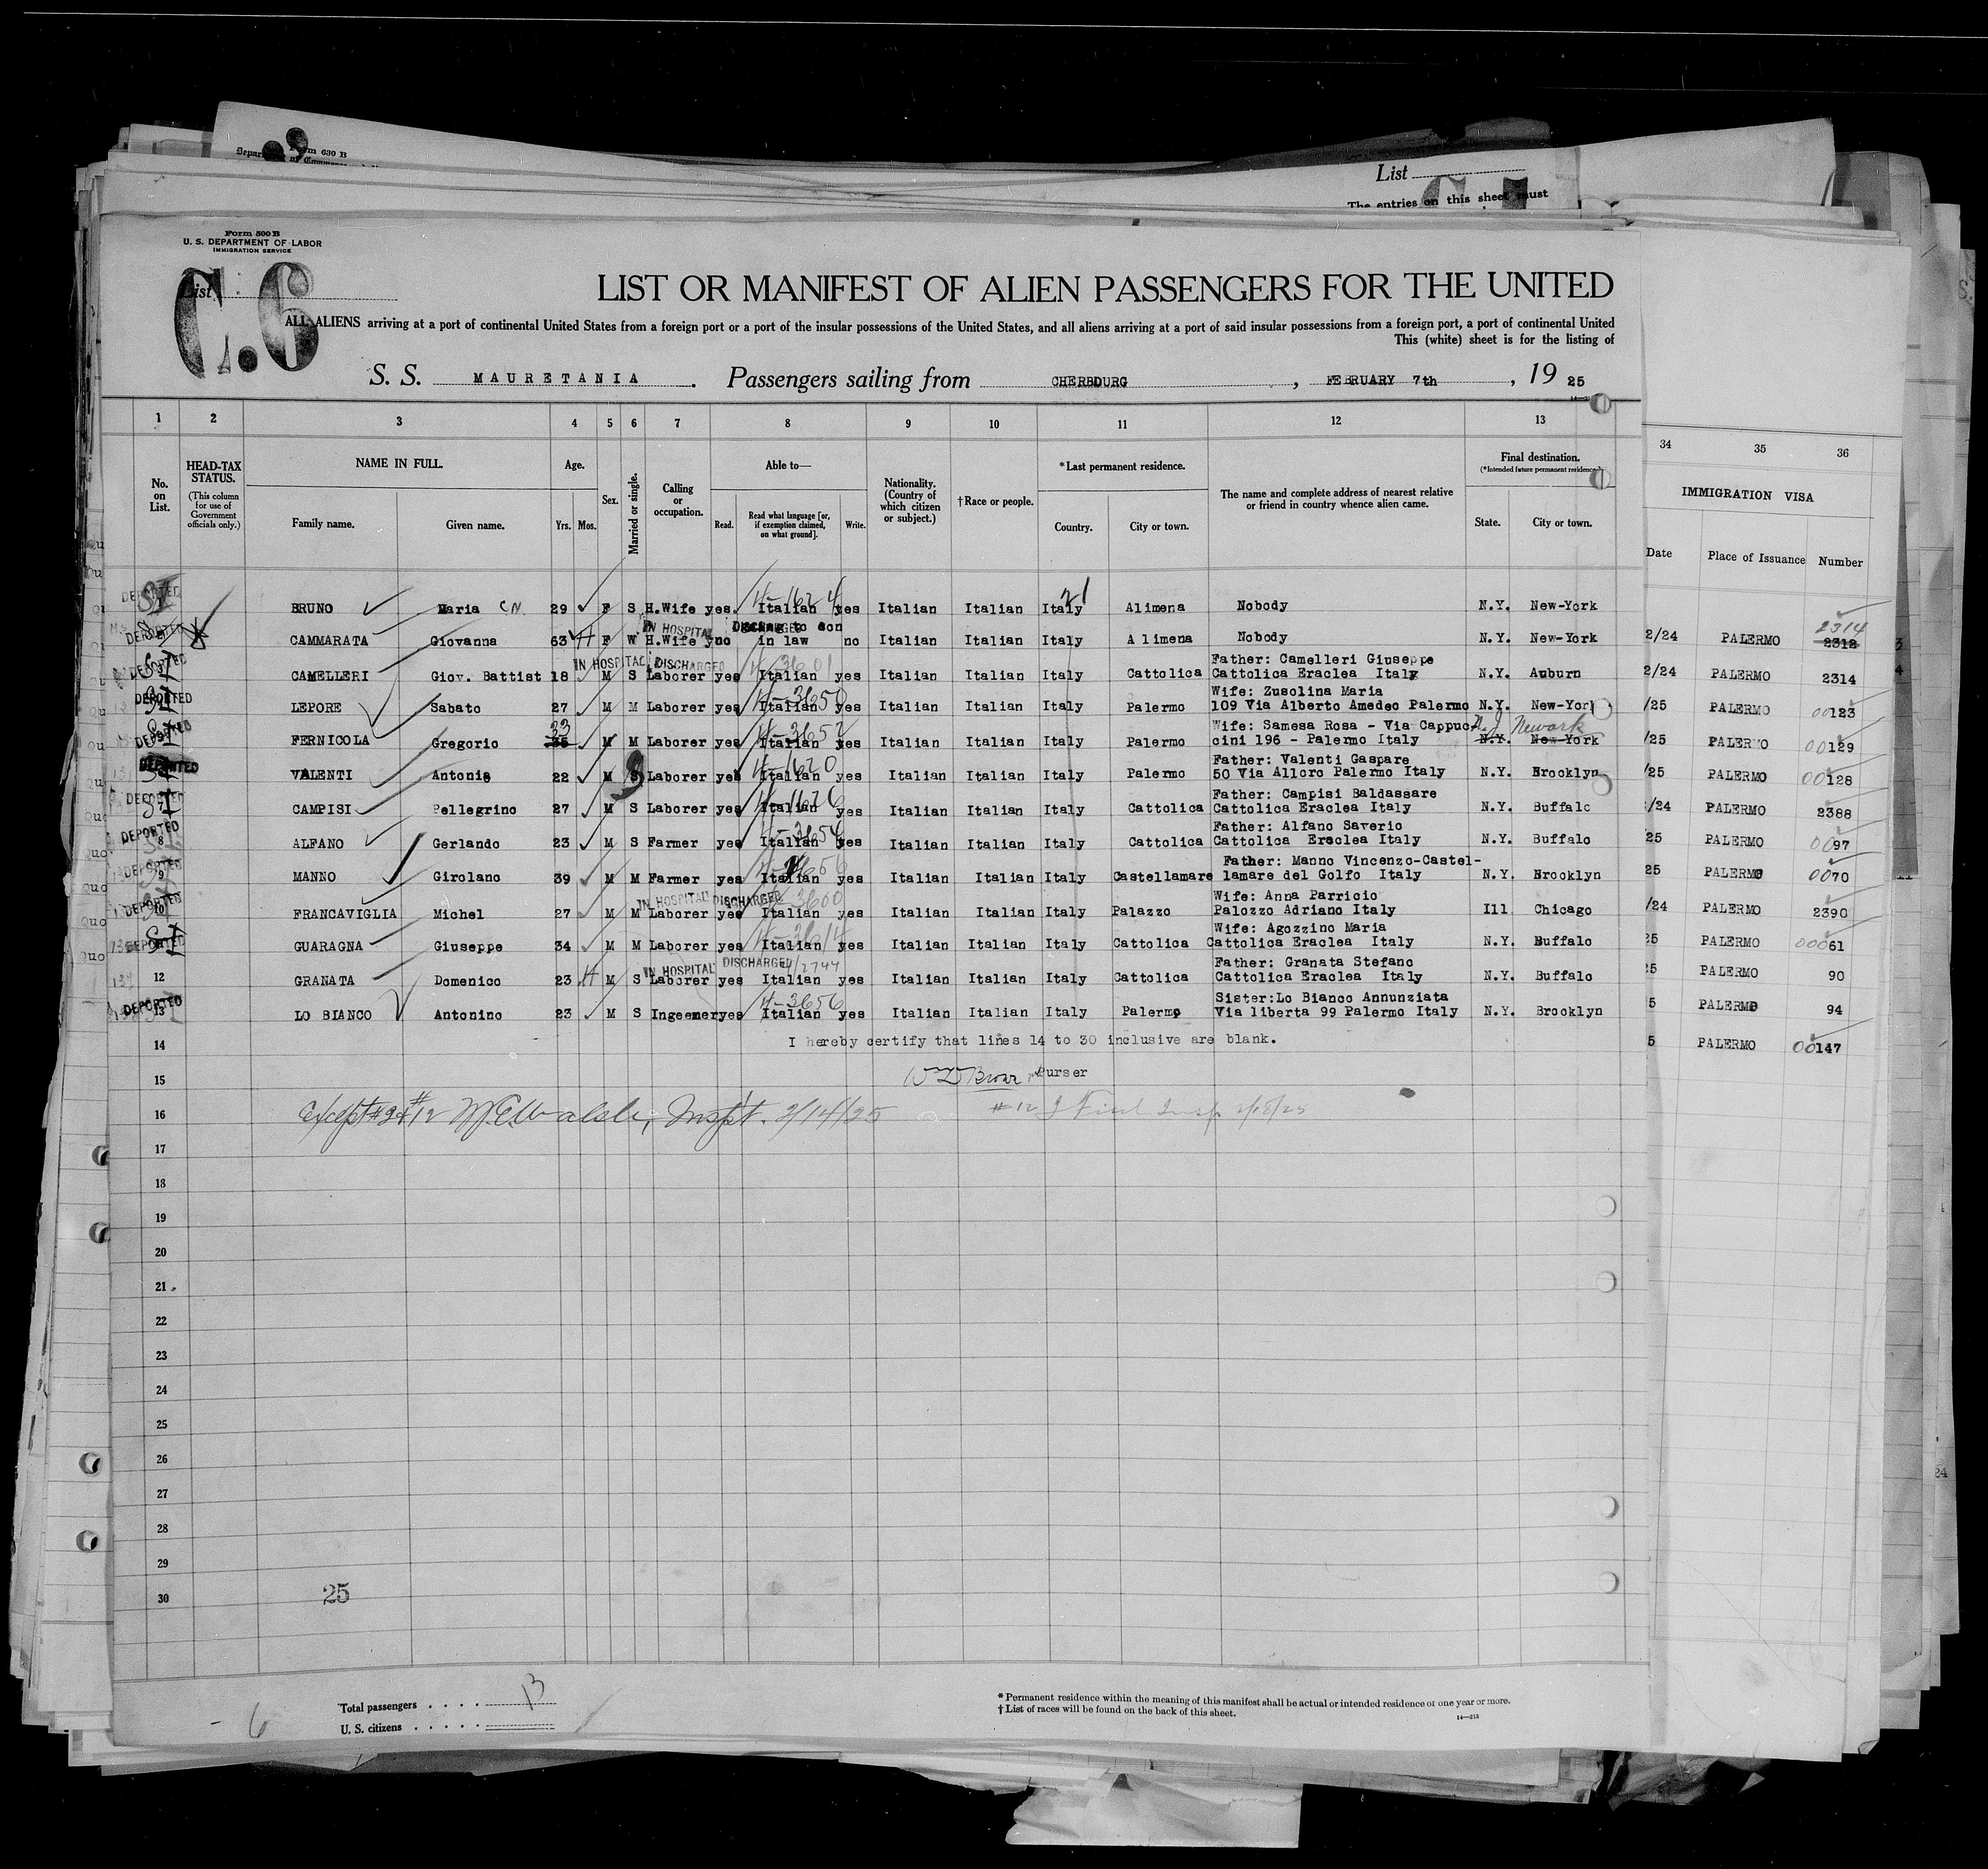 Form 630 B
List
The entries on this sheet must
Form 500 B
U. S. DEPARTMENT OF LABOR
IMMIGRATION SERVICE
List
C.6
LIST OR MANIFEST OF ALIEN PASSENGERS FOR THE UNITED
ALL ALIENS arriving at a port of continental United States from a foreign port or a port of the insular possessions of the United States, and all aliens arriving at a port of said insular possessions from a foreign port, a port of continental United
This (white) sheet is for the listing of
S. S. MAURETANIA. Passengers sailing from CHERBOURG, FEBRUARY 7th, 19 25
1 2 3 4 5 6 7 8 9 10 11 12 13
34 35 36
No. on List.
HEAD-TAX STATUS.
(This column for use of Government officials only.)
NAME IN FULL.
Family name. Given name.
Age.
Yrs. Mos.
Sex.
Married or single.
Calling or occupation.
Able to—
Read. Read what language [or, if exemption claimed, on what ground]. Write.
Nationality. (Country of which citizen or subject.)
†Race or people.
*Last permanent residence.
Country. City or town.
The name and complete address of nearest relative or friend in country whence alien came.
Final destination.
(*Intended future permanent residence.)
State. City or town.
IMMIGRATION VISA
Date Place of Issuance Number
DEPORTED SI BRUNO Maria CN 29 F S H.Wife yes Italian yes Italian Italian Italy Alimena Nobody N.Y. New-York
DEPORTED CAMMARATA Giovanna 63 H F W H.Wife no in law no Italian Italian Italy Alimena Nobody N.Y. New-York 2/24 PALERMO 2312 2314
IN HOSPITAL DISCHARGED
DEPORTED SI CAMELLERI Giov. Battist 18 M S Laborer yes Italian yes Italian Italian Italy Cattolica Father: Camelleri Giuseppe
Cattolica Eraclea Italy N.Y. Auburn 2/24 PALERMO 2314
IN HOSPITAL DISCHARGED
DEPORTED SI LEPORE Sabato 27 M M Laborer yes Italian yes Italian Italian Italy Palermo Wife: Zusolina Maria
109 Via Alberto Amedeo Palermo N.Y. New-York /25 PALERMO 00123
DEPORTED SI FERNICOLA Gregorio 35 33 M M Laborer yes Italian yes Italian Italian Italy Palermo Wife: Samesa Rosa - Via Cappuc
cini 196 - Palermo Italy N.Y. New-York N.J. Newark /25 PALERMO 00129
DEPORTED VALENTI Antonio 22 M S Laborer yes Italian yes Italian Italian Italy Palermo Father: Valenti Gaspare
50 Via Alloro Palermo Italy N.Y. Brooklyn /25 PALERMO 00128
DEPORTED SI CAMPISI Pellegrino 27 M S Laborer yes Italian yes Italian Italian Italy Cattolica Father: Campisi Baldassare
Cattolica Eraclea Italy N.Y. Buffalo /24 PALERMO 2388
DEPORTED 8 ALFANO Gerlando 23 M S Farmer yes Italian yes Italian Italian Italy Cattolica Father: Alfano Saverio
Cattolica Eraclea Italy N.Y. Buffalo 25 PALERMO 0097
DEPORTED 9 MANNO Girolano 39 M M Farmer yes Italian yes Italian Italian Italy Castellamare Father: Manno Vincenzo-Castel-
lamare del Golfo Italy N.Y. Brooklyn 25 PALERMO 0070
DEPORTED 10 FRANCAVIGLIA Michel 27 M M Laborer yes Italian yes Italian Italian Italy Palazzo Wife: Anna Parricio
Palozzo Adriano Italy Ill Chicago /24 PALERMO 2390
IN HOSPITAL DISCHARGED
DEPORTED SI GUARAGNA Giuseppe 34 M M Laborer yes Italian yes Italian Italian Italy Cattolica Wife: Agozzino Maria
Cattolica Eraclea Italy N.Y. Buffalo 25 PALERMO 00061
12 GRANATA Domenico 23 H M S Laborer yes Italian yes Italian Italian Italy Cattolica Father: Granata Stefano
Cattolica Eraclea Italy N.Y. Buffalo 5 PALERMO 90
IN HOSPITAL DISCHARGED
DEPORTED 13 LO BIANCO Antonino 23 M S Ingeener yes Italian yes Italian Italian Italy Palermo Sister:Lo Bianco Annunziata
Via liberta 99 Palermo Italy N.Y. Brooklyn 5 PALERMO 94
14 I hereby certify that lines 14 to 30 inclusive are blank. 5 PALERMO 00147
15 Purser
16 Except #2 & #12 Inspt. 2/14/25
17
18
19
20
21
22
23
24
25
26
27
28
29
30
25
Total passengers 13
U. S. citizens
- 6
* Permanent residence within the meaning of this manifest shall be actual or intended residence of one year or more.
† List of races will be found on the back of this sheet.
14—213